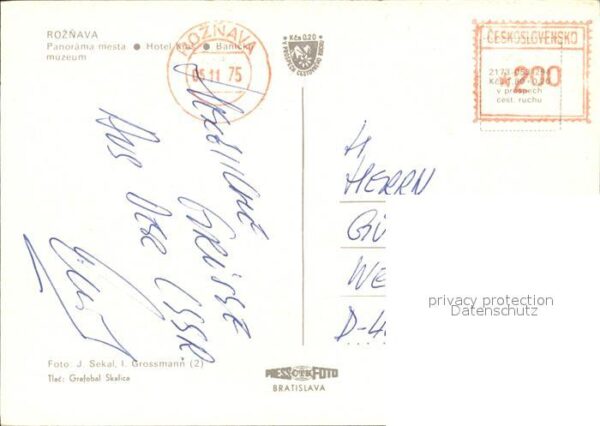 ROŽŇAVA
Panoráma mesta • Hotel Kras • Banícke
múzeum
ROŽŇAVA
05.11 75
Kčs 0,20
V PROSPECH CESTOVNÉHO RUCHU
ČESKOSLOVENSKO
*200
v prospech
cest. ruchu
HERZLICHE
GRÜSSE
AUS DER ČSSR
HERRN
GÜ
WE
D-4
privacy protection
Datenschutz
Foto: J. Sekal, I. Grossmann (2)
Tlač: Grafobal Skalica
PRESS ČTK FOTO
BRATISLAVA